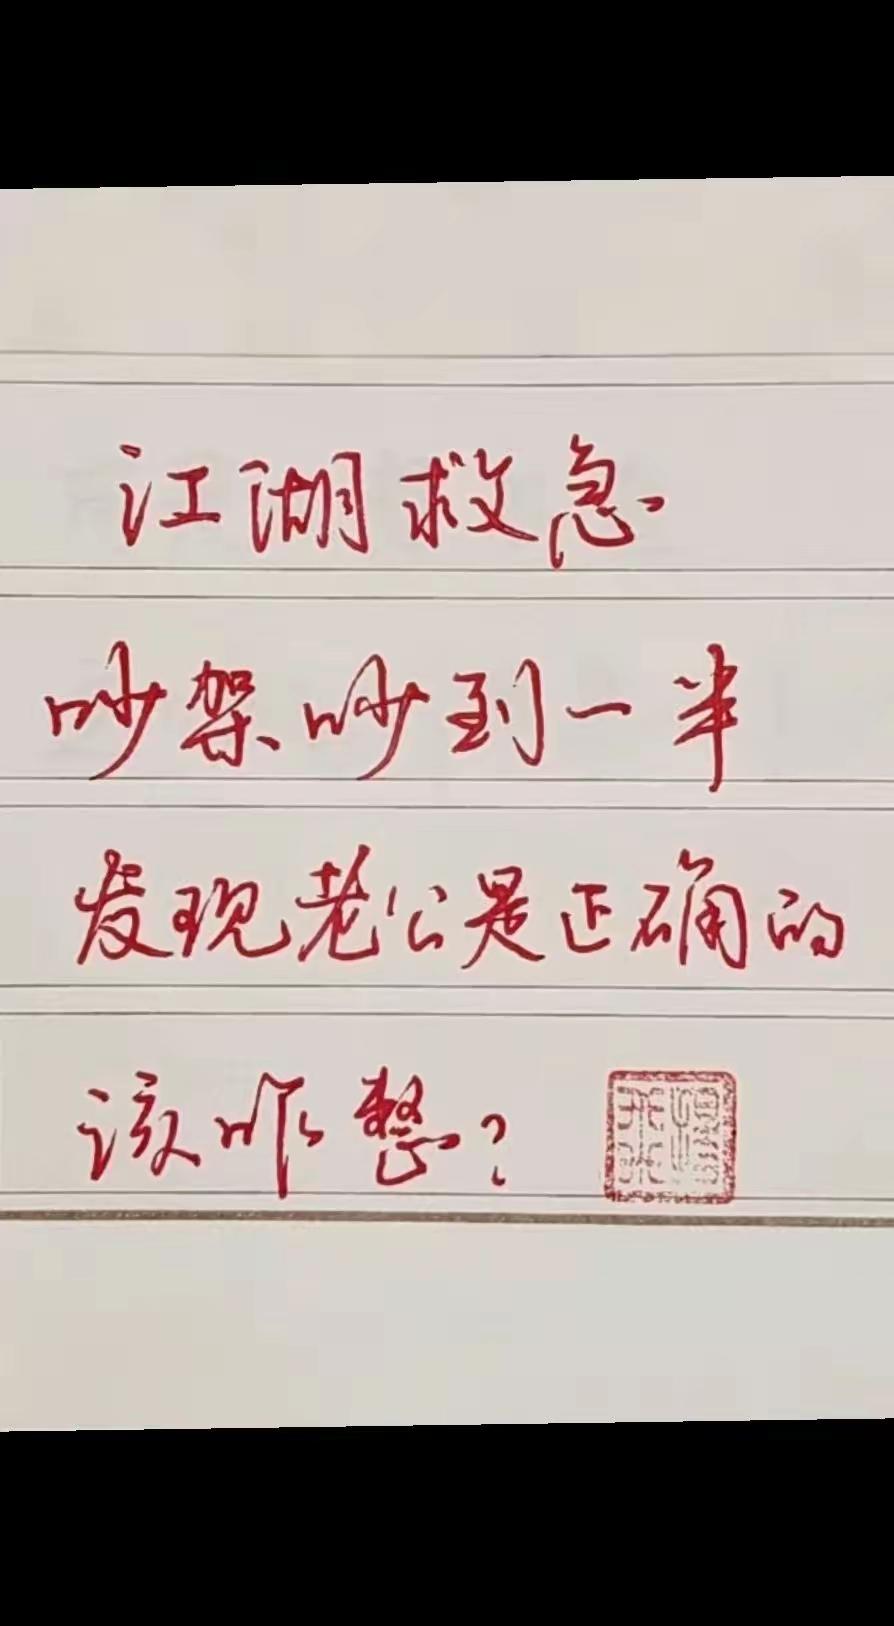 江湖救急
吵架吵到一半
发现老公是正确的
该咋整?